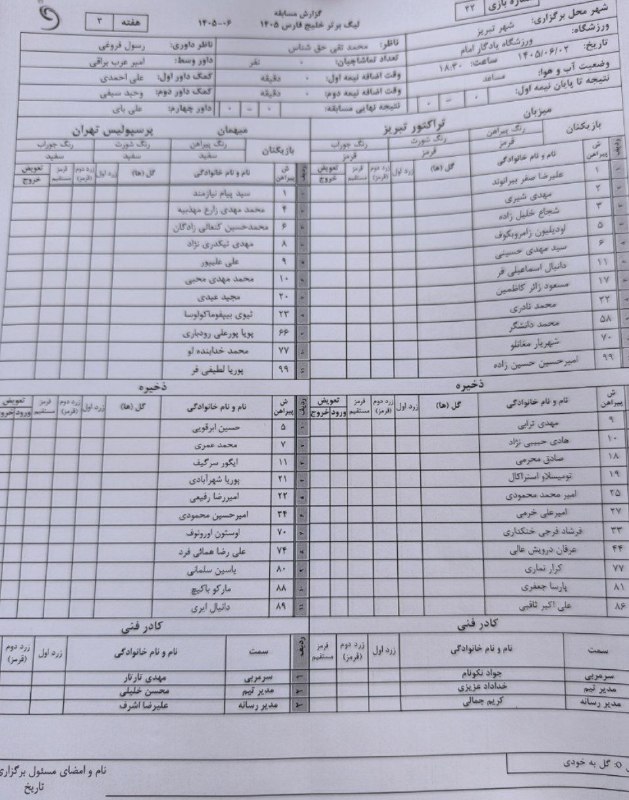 گزارش مسابقه
لیگ برتر خلیج فارس ۱۴۰۵
۱۴۰۵-۰۶
هفته ۳
شماره بازی ۲۲
شهر محل برگزاری: شهر تبریز
ورزشگاه: ورزشگاه یادگار امام
تاریخ: ۱۴۰۵/۰۶/۰۲ ساعت: ۱۸:۳۰
وضعیت آب و هوا: مساعد
نتیجه تا پایان نیمه اول: ۰ - ۰
ناظر: محمد تقی حق شناس
تعداد تماشاچیان: ۰ نفر
وقت اضافه نیمه اول: ۰ دقیقه
وقت اضافه نیمه دوم: ۰ دقیقه
نتیجه نهایی مسابقه: ۰ - ۰
ناظر داوری: رسول فروغی
داور وسط: امیر عرب براقی
کمک داور اول: علی احمدی
کمک داور دوم: وحید سیفی
داور چهارم: علی بای
میزبان تراکتور تبریز
بازیکنان رنگ پیراهن رنگ شورت رنگ جوراب
قرمز قرمز قرمز
ردیف ش پیراهن نام و نام خانوادگی گل (ها) زرد اول زرد دوم (قرمز) قرمز مستقیم تعویض خروج
۱ علیرضا صفر بیرانوند
۲ مهدی شیری
۳ شجاع خلیل زاده
۵ اودیلیون زامروبکوف
۶ سید مهدی حسینی
۱۱ دانیال اسماعیلی فر
۱۷ مسعود زائر کاظمین
۲۲ محمد نادری
۵۸ محمد دانشگر
۷۰ شهریار مغانلو
۹۹ امیرحسین حسین زاده
ذخیره
ش پیراهن نام و نام خانوادگی گل (ها) زرد اول زرد دوم (قرمز) قرمز مستقیم تعویض ورود خروج
۹ مهدی ترابی
۱۰ هادی حبیبی نژاد
۱۸ صادق محرمی
۱۹ تومیسلاو استراکال
۲۵ امیر محمد محمودی
۲۷ امیرعلی خرمی
۳۳ فرشاد فرجی خنکداری
۴۴ عرفان درویش عالی
۷۷ کرار نماری
۸۱ پارسا جعفری
۸۶ علی اکبر ثاقبی
کادر فنی
سمت نام و نام خانوادگی زرد اول زرد دوم (قرمز) قرمز مستقیم
سرمربی جواد نکونام
مدیر تیم خداداد عزیزی
مدیر رسانه کریم جمالی
میهمان پرسپولیس تهران
بازیکنان رنگ پیراهن رنگ شورت رنگ جوراب
سفید سفید سفید
ردیف ش پیراهن نام و نام خانوادگی گل (ها) زرد اول زرد دوم (قرمز) قرمز مستقیم تعویض خروج
۱ سید پیام نیازمند
۴ محمد مهدی زارع مهذبیه
۶ محمدحسین کنعانی زادگان
۸ مهدی تیکدری نژاد
۹ علی علیپور
۱۰ محمد مهدی محبی
۲۰ مجید عیدی
۲۳ تیوی بیفوماکولوسا
۶۶ پویا پورعلی رودباری
۷۷ محمد خدابنده لو
۹۹ پوریا لطیفی فر
ذخیره
ردیف ش پیراهن نام و نام خانوادگی گل (ها) زرد اول زرد دوم (قرمز) قرمز مستقیم تعویض ورود خروج
۵ حسین ابرقویی
۷ محمد عمری
۱۱ ایگور سرگیف
۲۱ پوریا شهرآبادی
۲۲ امیررضا رفیعی
۳۴ امیرحسین محمودی
۷۰ اوستون اورونوف
۷۴ علی رضا همائی فرد
۸۰ یاسین سلمانی
۸۸ مارکو باکیچ
۸۹ دانیال ایری
کادر فنی
ردیف سمت نام و نام خانوادگی زرد اول زرد دوم (قرمز)
۱ سرمربی مهدی تارتار
۲ مدیر تیم محسن خلیلی
۳ مدیر رسانه علیرضا اشرف
O: گل به خودی
نام و امضای مسئول برگزاری
تاریخ